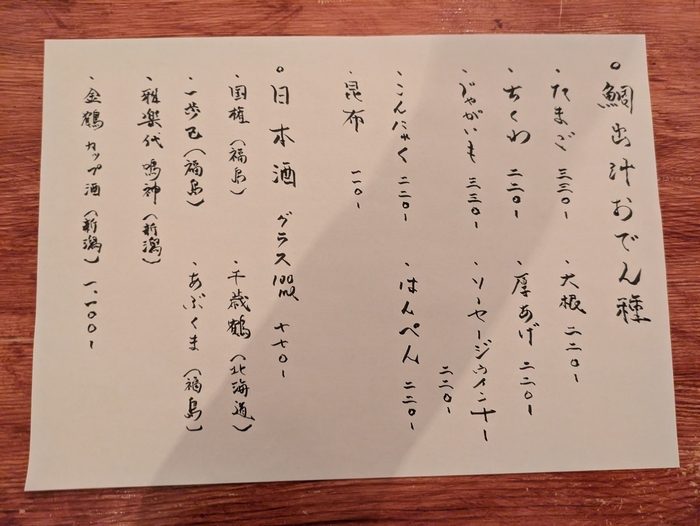 ○鯛出汁おでん種
・たまご 三三〇-
・大根 二二〇-
・ちくわ 二二〇-
・厚あげ 二二〇-
・じゃがいも 三三〇-
・ソーセージウインナー
二二〇-
・こんにゃく 二二〇-
・はんぺん 二二〇-
・昆布 一一〇-
○日本酒 グラス100ml 七七〇-
・国権(福島)
・千歳鶴(北海道)
・一歩己(福島)
・あぶくま(福島)
・雅楽代 鳴神(新潟)
・金鶴 カップ酒(新潟) 一、一〇〇-